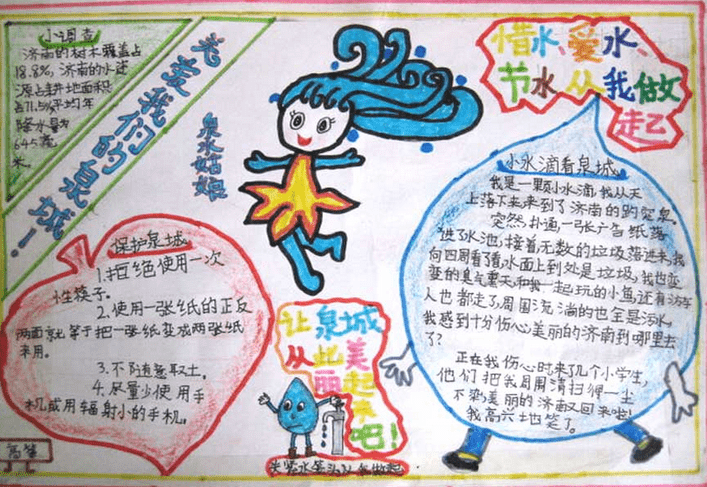 小调查
济南的树木覆盖占
18.8%,济南的水资
源占耕地面积
占71.5%平均年
降水量为
645毫
米。
关爱我们的泉城!
泉水姑娘
惜水、爱水、
节水从我做
起
小水滴看泉城
我是一颗小水滴,我从天
上落下来来到了济南的趵突泉。
突然,扑通,一张广告纸落
进了水池,接着无数的垃圾落进来,我
向四周看了看水面上到处是垃圾,我也变
变的臭气熏天,和我一起玩的小鱼还有游客
人也都走了,周围流淌的也全是污水,
我感到十分伤心美丽的济南到哪里去
了?
正在我伤心时来了几个小学生,
他们把我周围清扫得一尘
不染,美丽的济南又回来啦!
我高兴地笑了。
保护泉城
1.拒绝使用一次
性筷子。
2.使用一张纸的正反
两面就等于把一张纸变成两张纸
来用。
3.不随意取土。
4.尽量少使用手
机或用辐射小的手机。
让泉城
从此美
丽起
来吧!